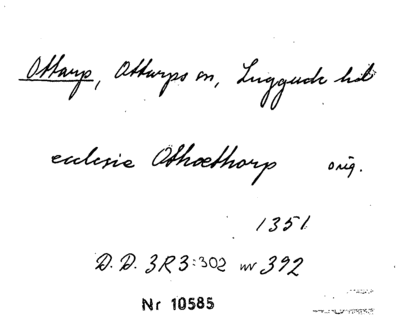 Ottarp, Ottarps sn, Luggude hd
ecclesie Othæthorp orig.
1351
D.D. 3R3:302 nr 392
Nr 10585